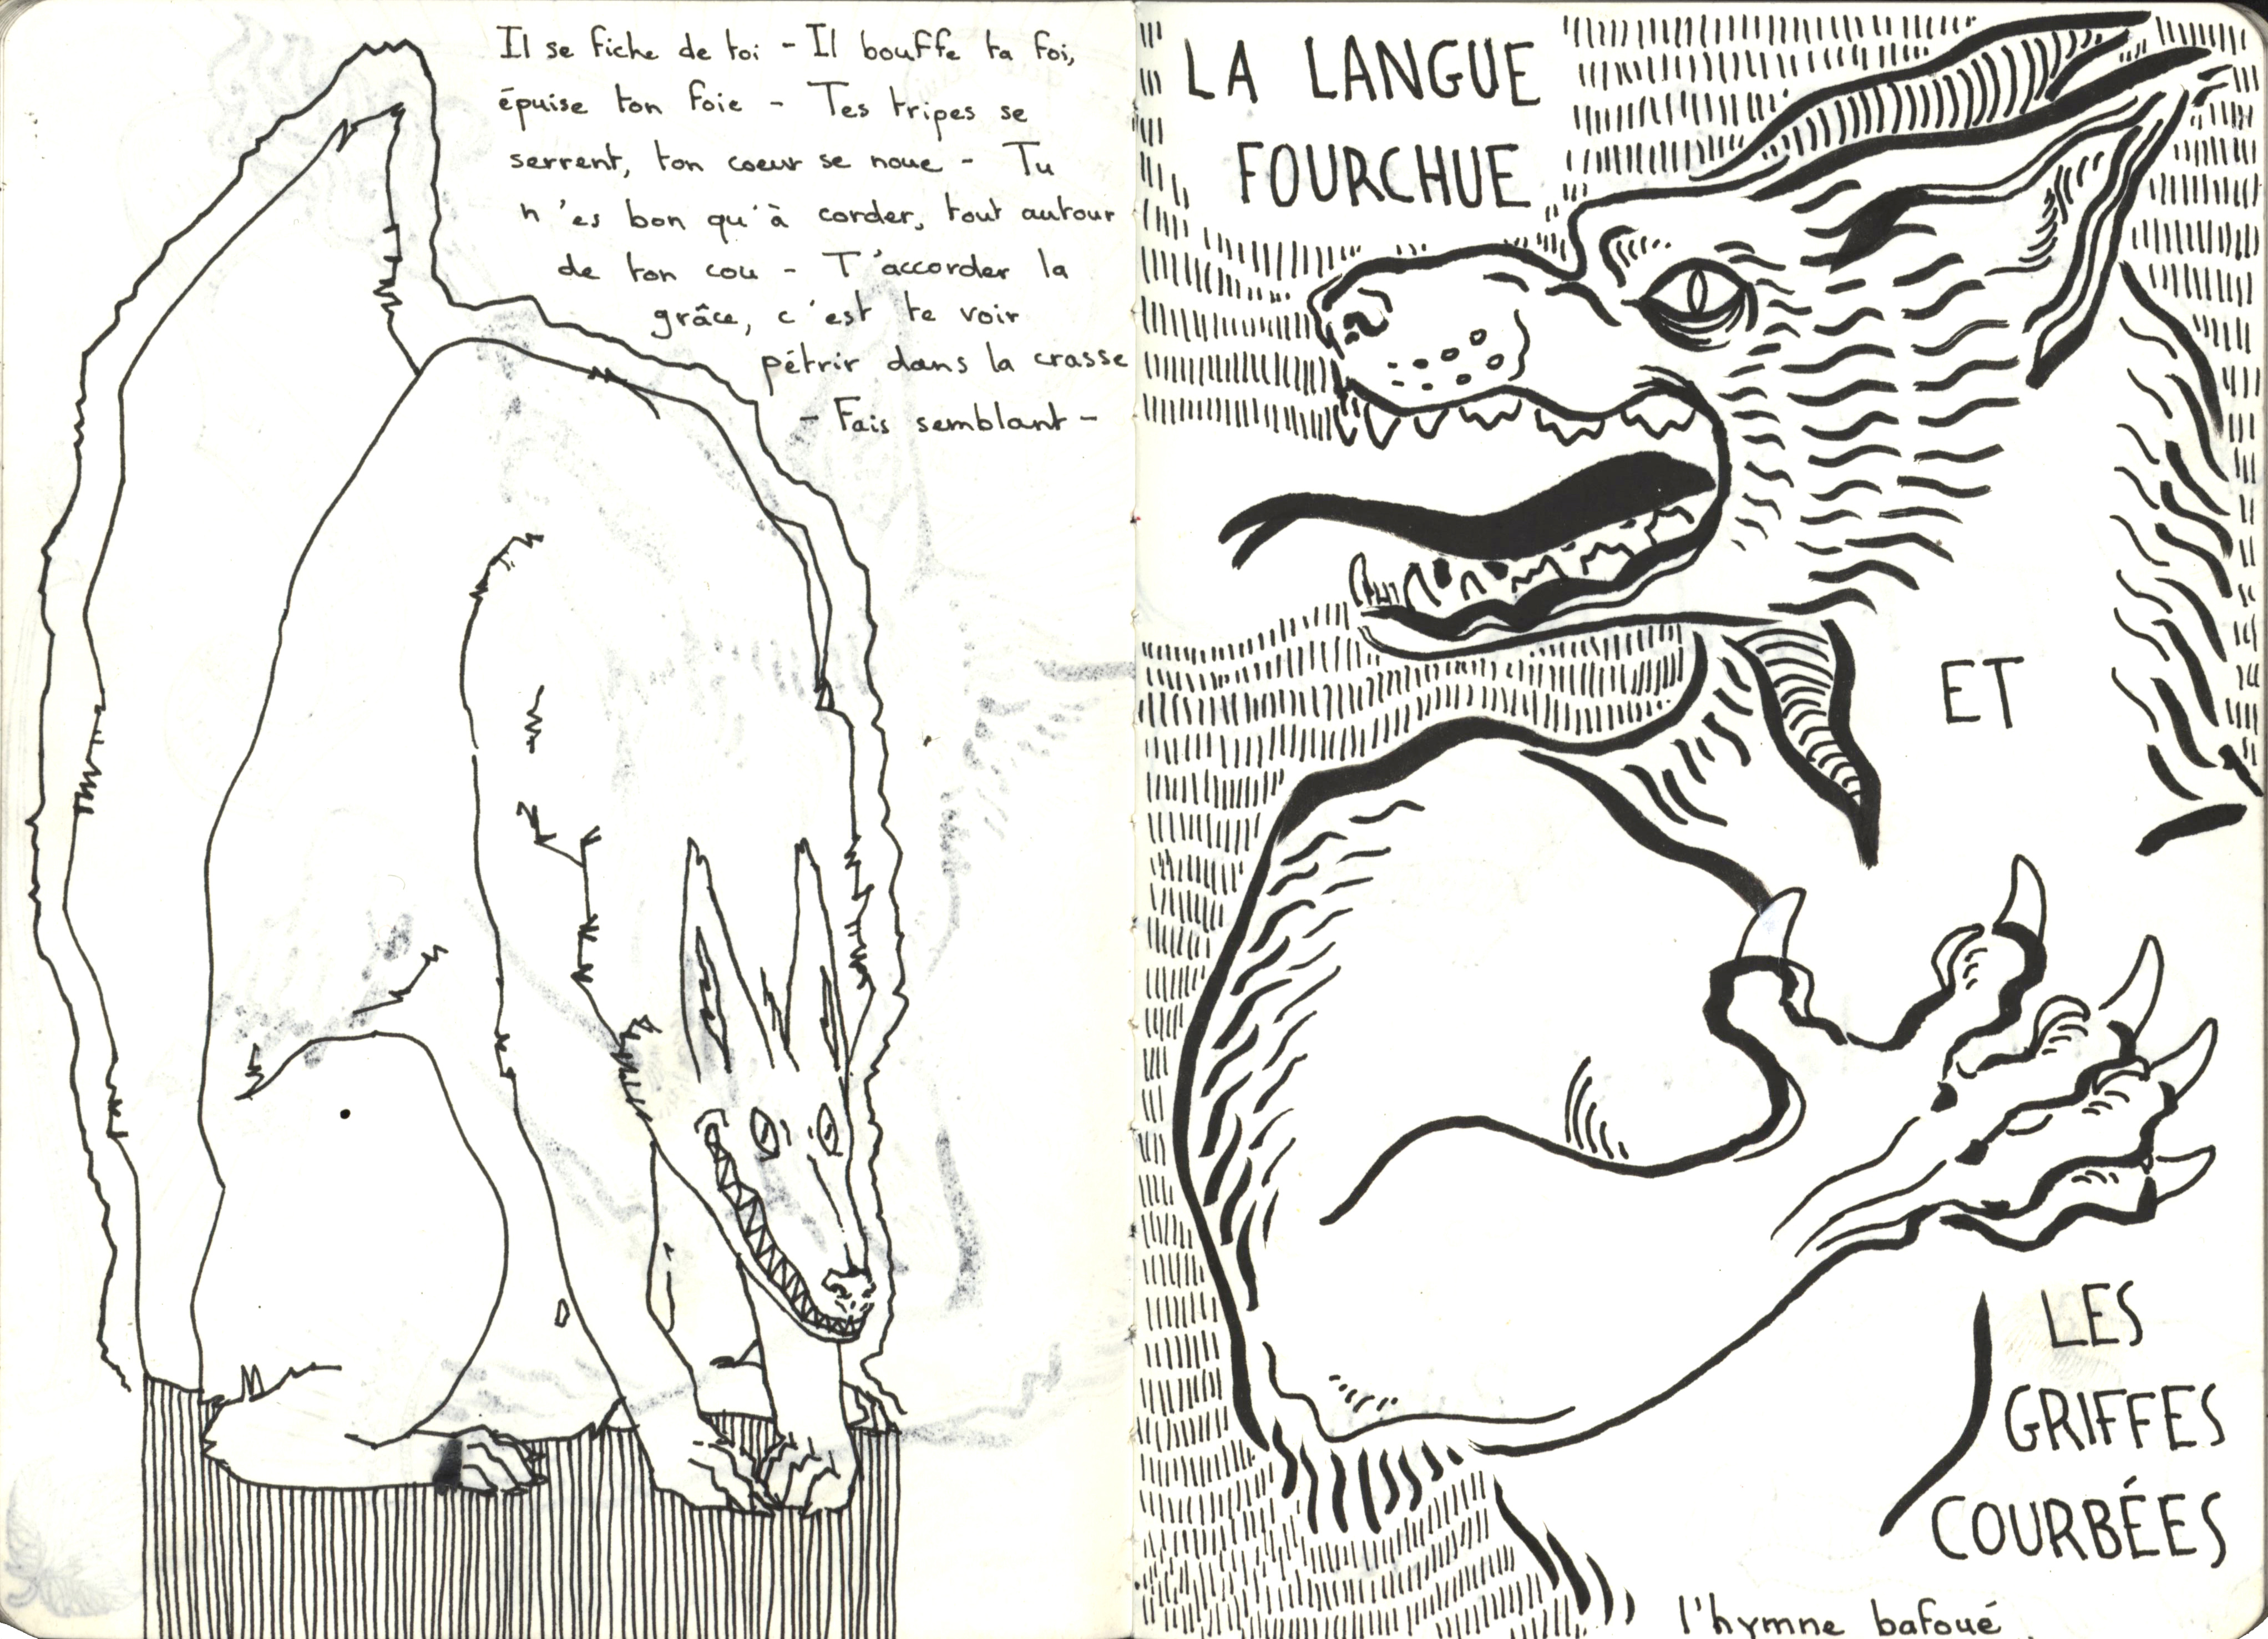 Il se fiche de toi - Il bouffe ta foi,
épuise ton foie - Tes tripes se
serrent, ton coeur se noue - Tu
n'es bon qu'à corder, tout autour
de ton cou - T'accorder la
grâce, c'est te voir
pétrir dans la crasse
- Fais semblant -
LA LANGUE
FOURCHUE
ET
LES
GRIFFES
COURBÉES
l'hymne bafoué